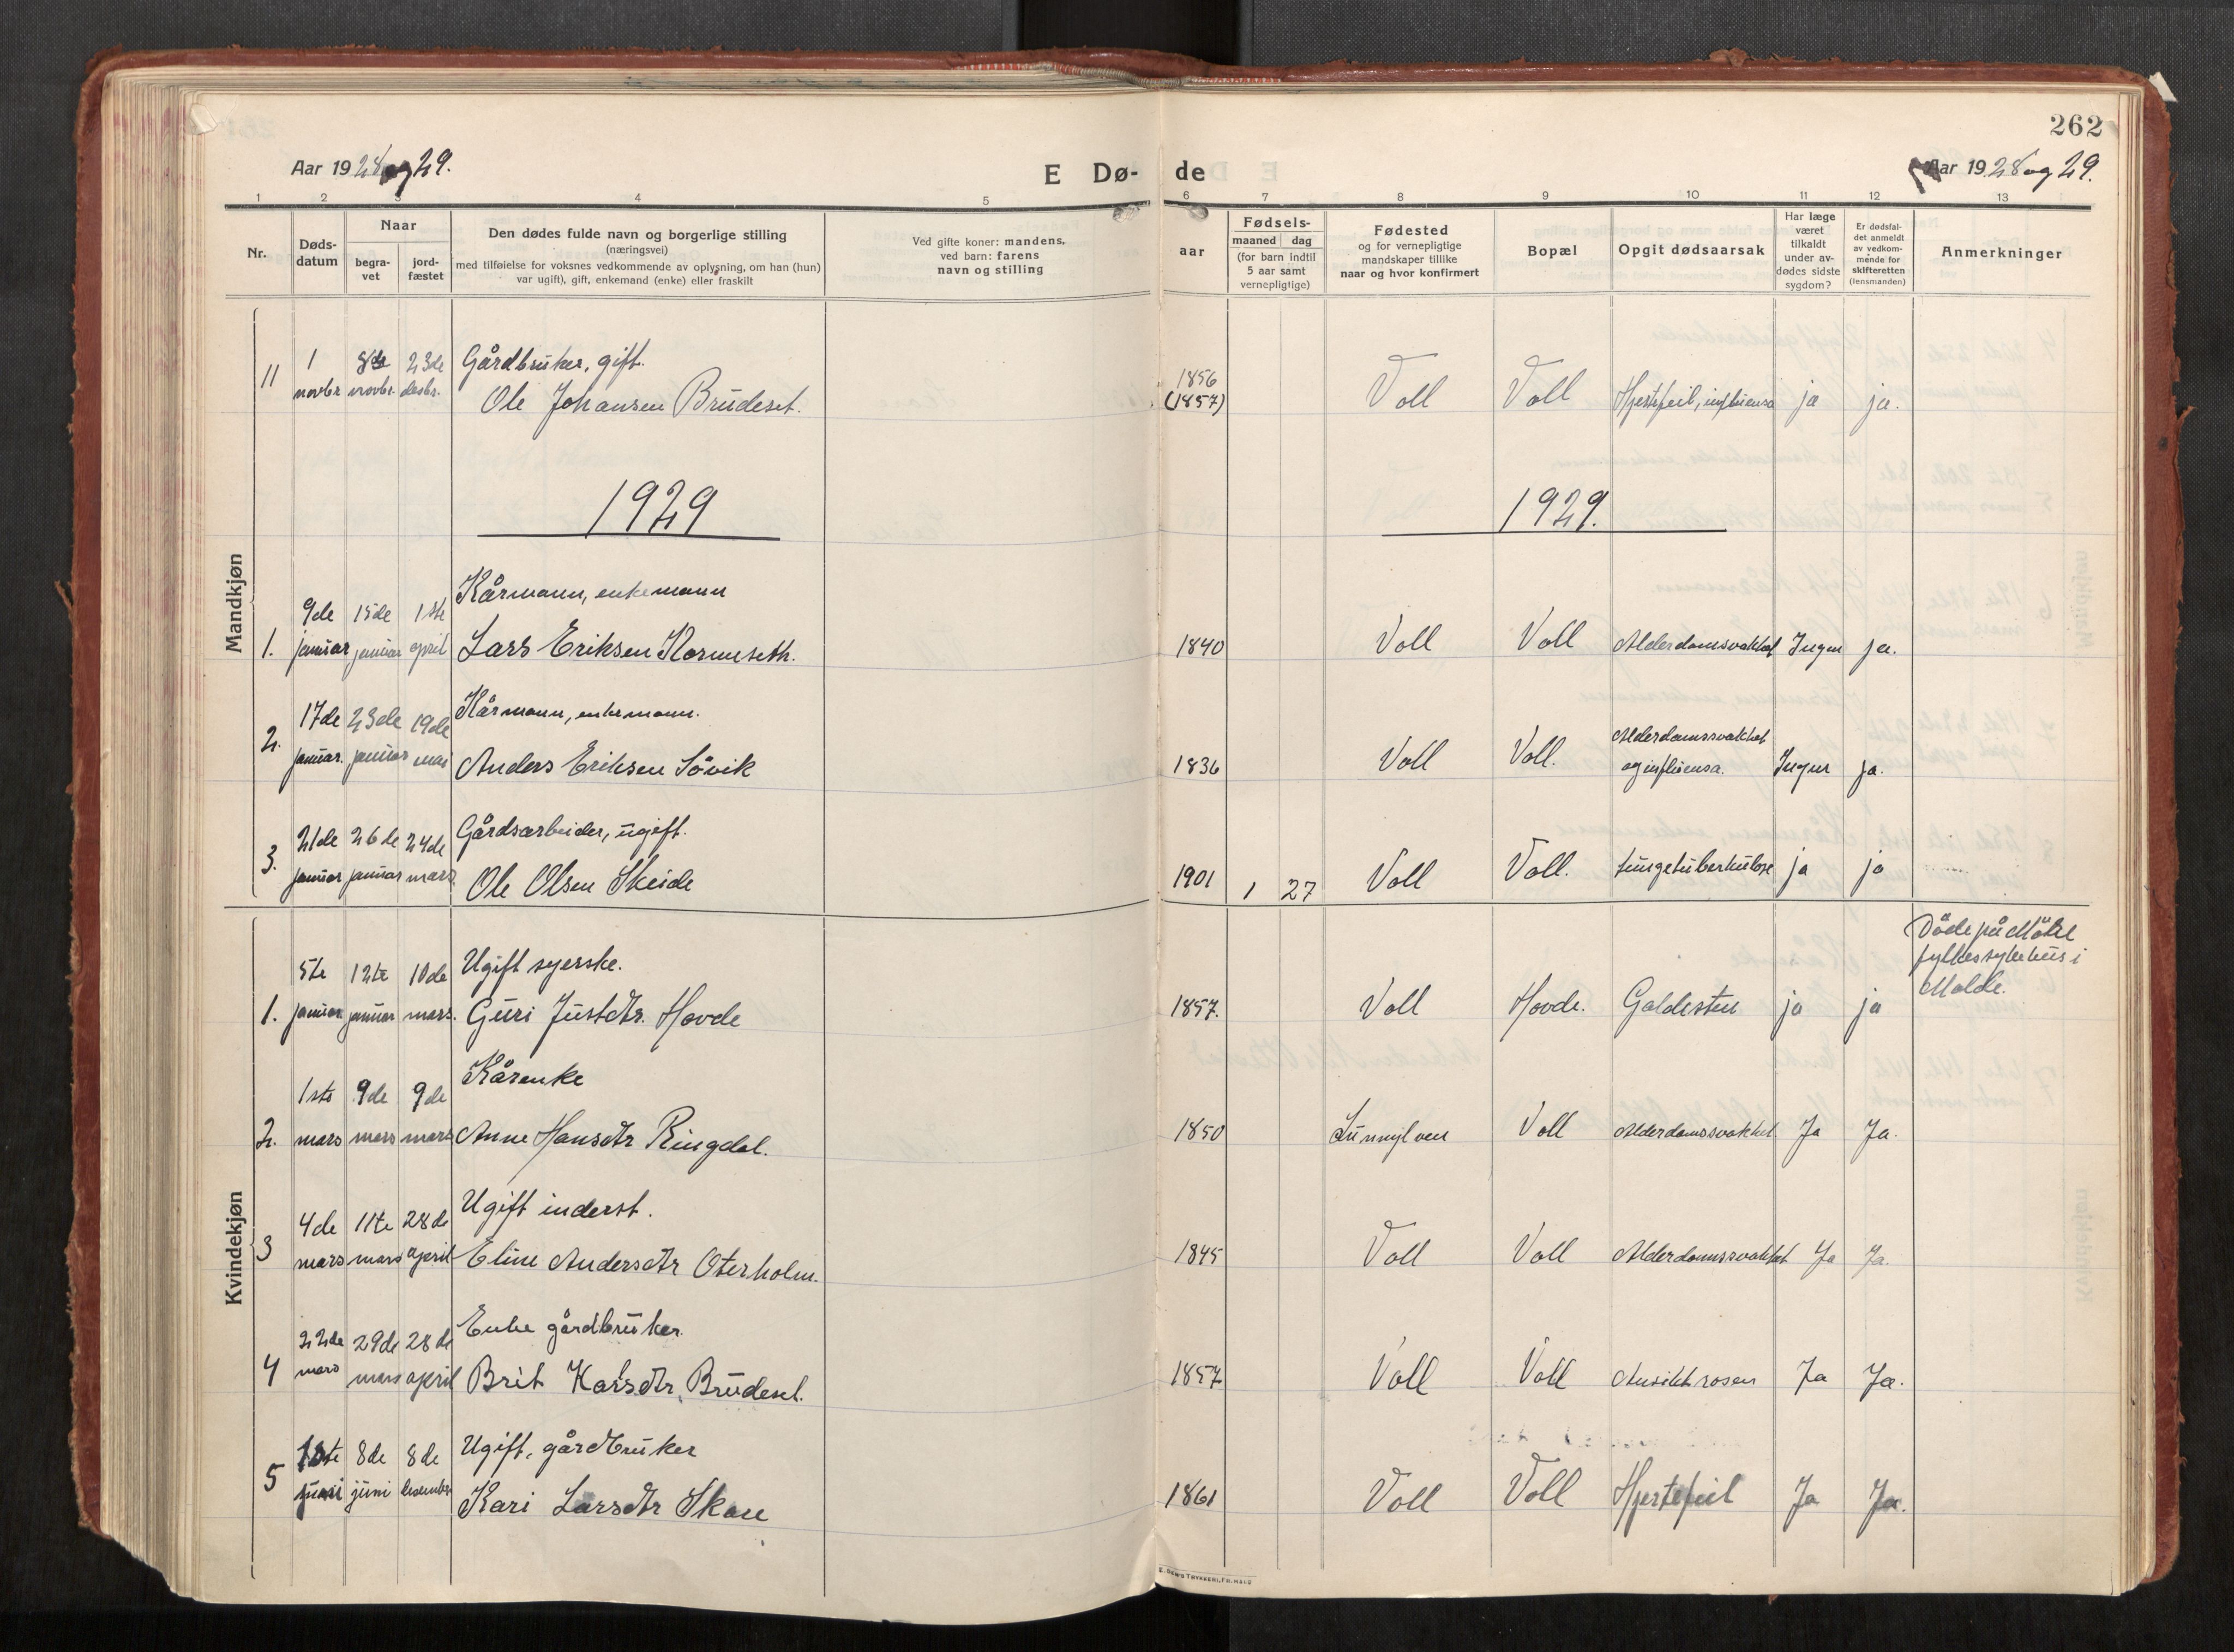 262
Aar 1928 og 29.
E Dø-
de
Aar 1928 og 29.
1 2 3 4 5 6 7 8 9 10 11 12 13
Nr.
Døds-
datum
Naar
begra-
vet
jord-
fæstet
Den dødes fulde navn og borgerlige stilling
(næringsvei)
med tilføielse for voksnes vedkommende av oplysning, om han (hun)
var ugift), gift, enkemand (enke) eller fraskilt
Ved gifte koner: mandens,
ved barn: farens
navn og stilling
aar
Fødsels-
maaned dag
(for barn indtil
5 aar samt
vernepligtige)
Fødested
og for vernepligtige
mandskaper tillike
naar og hvor konfirmert
Bopæl
Opgit dødsaarsak
Har læge
været
tilkaldt
under av-
dødes sidste
sygdom?
Er dødsfal-
det anmeldt
av vedkom-
mende for
skifteretten
(lensmanden)
Anmerkninger
Mandkjøn
1 8de 23de Gårdbruker, gift. 1856
11 novbr novbr. desbr. Ole Johansen Brudeset. (1857) Voll Voll Hjertefeil, influensa ja ja.
1929 1929.
9de 15de 1ste Kårmann, enkemann
1. januar januar april Lars Eriksen Kornseth. 1840 Voll Voll Alderdomsvakhet Ingen ja.
17de 23de 19de Kårmann, enkemann. Alderdomssvakhet
2. januar. januar mai Anders Eriksen Sövik 1836 Voll Voll. og influensa. Ingen ja.
21de 26de 24de Gårdsarbeider, ugift.
3. januar januar mars Ole Olsen Skeide 1901 1 27 Voll Voll. tungetuberkulose ja ja
Kvindekjøn
5te 12te 10de Ugift syerske. Döde på Möre
fylkessykehus i
1. januar januar mars. Guri Justdtr. Hovde 1857. Voll Hovde. Galdesten ja ja Molde.
1ste 9de 9de Kårenke
2. mars mars mars Anne Hansdtr Ringdal. 1850 Sunnylven Voll Alderdomssvakhet Ja Ja.
4de 11te 28de Ugift inderst.
3 mars mars april Eline Andersdtr Oterholm. 1845 Voll Voll Alderdomssvakhet Ja Ja.
22de 29de 28de Enke gårdbruker.
4 mars mars april Brit Larsdtr. Brudeset. 1857 Voll Voll Ansiktrosen Ja Ja.
1ste 8de 8de Ugift, gårdbruker
5 juni juni desember Kari Larsdtr Skare 1861 Voll Voll Hjertefeil Ja Ja.
E. DAWS TRYKKERI, FR.HALD